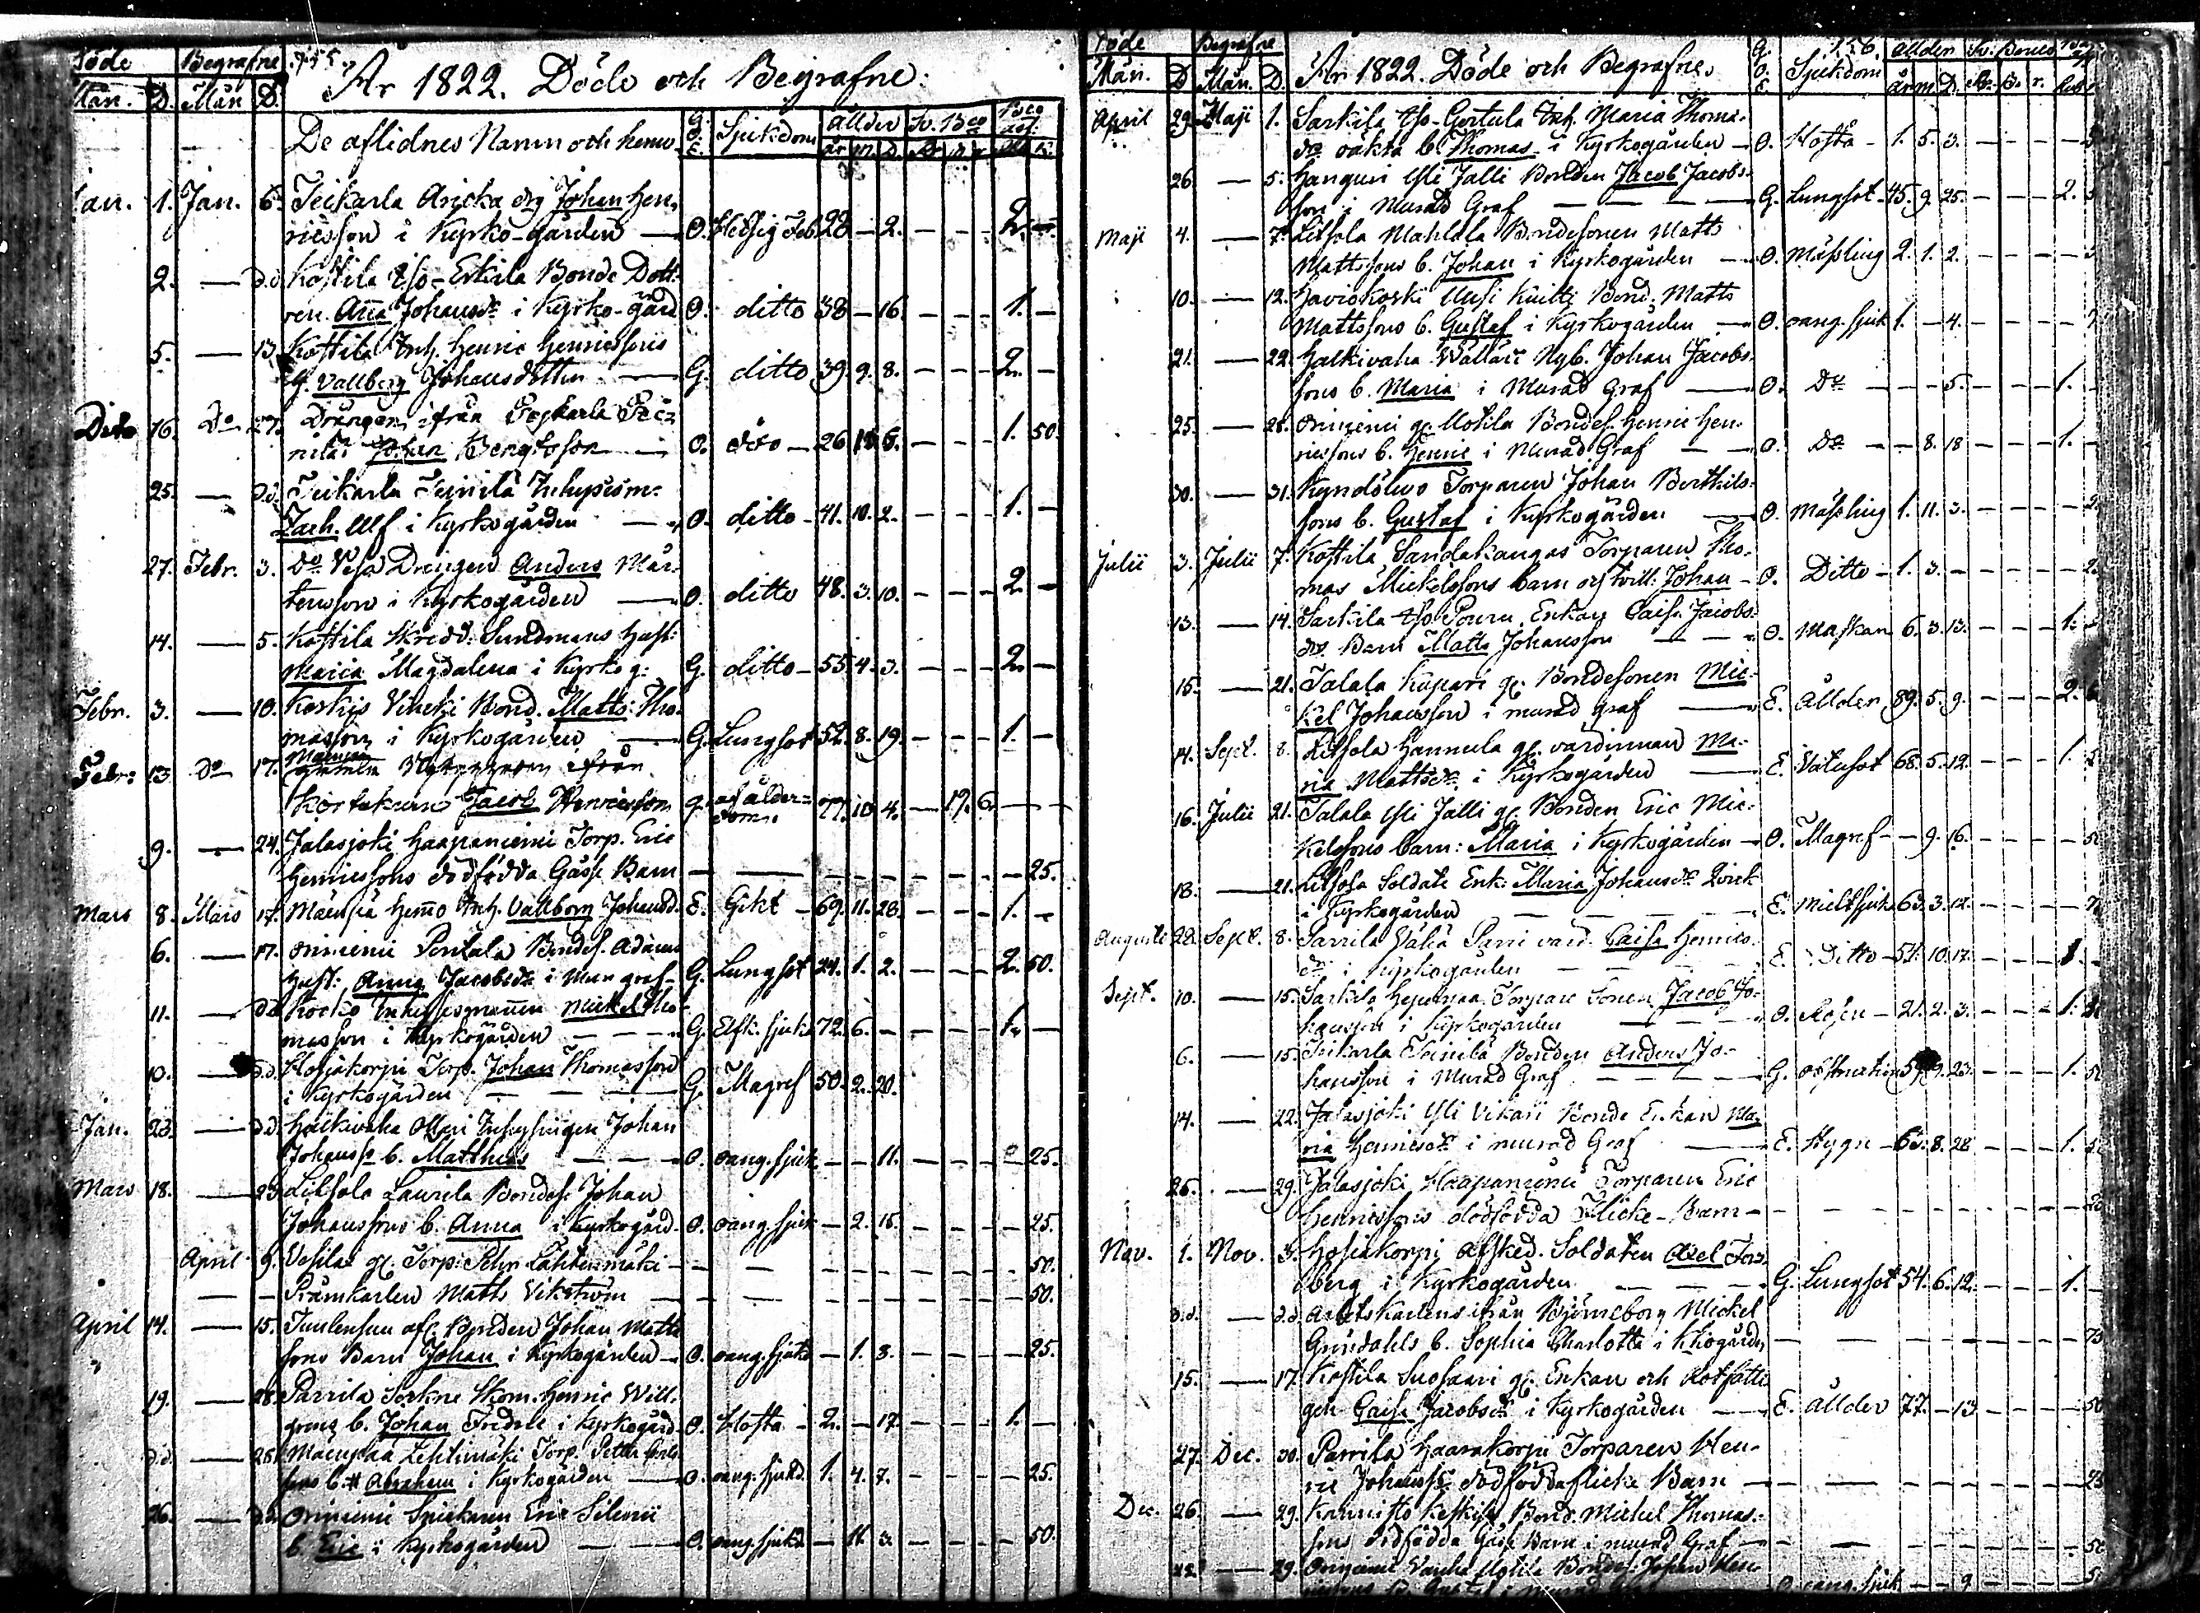 Döde Begrafne 755.
Mån. D. Mån D. År 1822. Döde och Begrafne.
De aflidnes Namn och hemv. G. O. E. Sjukdom ållder Sv. Bco Bco
år m. D.
Jan. 1. Jan. 6. Teikarla Anicka drg Johan Hen-
ricsson i Kyrko-gården — O. Hetsig Feb. 28 — 2. — — — 2. —
2. — d.d. Kåstila Iso-Erkila Bonde Dott-
ren Anna Johansdr i Kyrko-gård O. ditto 38 — 16. — — — 1. —
5. — 13. Kåstila Inh. Henric Henricssons
H. Vallborg Johansdotter — G. ditto 39. 9. 8. — — — 2. —
Dito 16. Do 27. Drängen ifrån Teikarla Tei-
nilä Johan Bengtsson — O. dito — 26 — — — 1. 50.
25. — d.d. Teikarla Teinilä Inhysesm.
Zach. Ulf i Kyrkogården — O. ditto — 41. 10. 2. — — — 1. —
27. Febr. 3. Do Vesa Drengen Anders Mår-
tensson i Kyrkogården — O. ditto 48. 3. 10. — — — 2 —
14. — 5. Kåstila Skredd. Sundmans hust:
Maria Magdalena i Kyrkog: G. ditto — 55. 4. 3. — — — 2. —
Febr. 3. — 10. Koskis Bond. Matts Tho-
masson i Kyrkogården — G. Lungsot 52. 8. 19. — — — 1. —
Febr: 13 do 17. ifrån
Jacob Henricsson g. af ålder-
dom 77. 10 4. — 19. 6. — —
9. — 24. Jalasjoki Haapaniemi Torp. Eric
Henricssons dödfödda Gåsse Barn — — — — — — 25.
Mars 8. Mars 17. Mäenpää hemo Inh. Vallborg Johansd. E. Gikt — 69. 11. 28. — — — 1. —
6. — 17. Oriniemi Pentala Bondes. Adams
hust: Anna Jacobsdr i Mur graf — G. Lungsot 24. 1. 2. — — — 2. 50.
11. — d.d. Kocko Inhysesmannen Mickel Tho-
masson i Kyrkogården — G. Elfk. sjuka 72. 6. — — — — 1. —
10. — d.d. Hosjakorpi Torp. Johan Thomasson
i Kyrkogården — G. Magref 50. 2. 20.
Jan. 23. — d.d. Halkivaha Ollari Inhysingen Johan
Johanss. b. Matthias — O. oang. sjuk — — 11. — — — 25.
Mars 18. — 23. Litsola Laurila Bondes. Johan
Johanssons b. Anna i Kyrkogård. O. oang. sjuk — 2. 15. — — — 25.
April 9. Vesilax gl. Torp. Pehr Lähtenmäki — — — 50.
— — Pråmkarlen Matts Vikström — — — 50.
April 14. — 15. af. Bonden Johan Matts-
sons Barn Johan i Kyrkogården — O. oang. sjukd. — 1. 8. — — — 25.
19. — 28. Parrila Sorkne Skom. Henric Will-
grens b. Johan Fredric i Kyrkogård. O. Hosta — 2. — 17. — — — 1. —
d.d. — 28. Mäenpää Lehtimäki Torp. Petter
sons b. Abraham i Kyrkogården — O. oang. sjukd. 1. 4. 7. — — — 25.
26. — d.d. Oriniemi Spickaren Eric Silenii
b. Eric i Kyrkogården — O. oang. sjukd. — 11. 3. — — — 50.
Döde Begrafne 756. ållder Sv. Banco
Mån. D Mån. D. År 1822. Döde och Begrafne. G. O. E. Sjukdom år m D.
April 29. Maji 1. Sarkila Iso-Gertula Inh. Maria Thoma-
dr oäkta b. Thomas i Kyrkogården — O. Hosta — 1. 5. 3. — — —
26. — 5. Hanguri Yli Jalli Bonden Jacob Jacobs-
son i Murad Graf — G. Lungsot — 45. 9. 25. — — — 2.
Maji 4. — 7. Litsola Mahlala Bondesonen Matts
Mattssons b. Johan i Kyrkogården — O. Mässling 2. 1. 2. — — —
10. — 12. Haviokoski Uusi Kuitti Bond. Matts
Mattssons b. Gustaf i Kyrkogården — O. oang. sjuk 1. — 4. — — —
21. — 22. Halkivaha Wallari Nyb. Johan Jacobs-
sons b. Maria i Murad Graf — O. Do — — 5. — — — 1.
25. — 28. Oriniemi gl. Uotila Bondes. Henric Hen-
ricssons b. Henric i Murad Graf — O. Do — — 8. 18 — — — 1.
30. — 31. Kyndölvo Torparen Johan Berthils-
sons b. Gustaf i Kyrkogården — O. Mässling 1. 11. 3. — — —
Julii 3. Julii 7. Kåstila Sandakangas Torparen Tho-
mas Mickelssons barn och tvill: Johan — O. Ditto — 1. 3. — — —
13. — 14. Sarkila Iso Pouru Enkan Caisa Jacobs-
dr Barn Matts Johansson — O. Maskar 6. 3. 13. — — — 1.
15. — 21. Talala Kupari gl. Bondesonen Mic-
kel Johansson i murad graf — E. Ållder 89. 5. 9. — — — 2.
14. Sept. 8. Litsola Hannula gl. värdinnan Ma-
ria Mattsdr i Kyrkogården — E. Vatusot 68. 5. 12. — — — 1.
16. Julii 21. Talala Yli Jalli gl. Bonden Eric Mic-
kelssons barn: Maria i Kyrkogården — O. Magref — — 9. 16. — — —
18. — 21. Litsola Soldate Enk. Maria Johansdr Qvick
i Kyrkogården — E. mieltsjuka 63. 3. 12. — — —
Augusti 22. Sept. 8. Parrila Vähä Parri värd. Caisa Henrics-
dr i Kyrkogården — E. Ditto — 57. 10. 17. — — — 1.
Sept. 10. — 15. Sarkila Torpare Sonen Jacob Jo-
hansson i Kyrkogården — O. Rosen — 21. 2. 3. — — — 1.
6. — 15. Teikarla Teinilä Bonden Anders Jo-
hansson i Murad Graf — G. obstruction 59. 9. 23. — — — 1.
14. — 22. Jalasjoki Yli Vikari Bonde Enkan Ma-
ria Henricsdr i murad Graf — E. Stygn — 8. 28 — — — 1.
26. — 29. Jalasjoki Haapaniemi Torparen Eric
Henricssons dödfödda Flicke-Barn — — —
Nov. 1. Nov. 3. Hosiakorpi afsked. Soldaten Axel Fors-
berg i Kyrkogården — G. Lungsot 54. 6. 12. — — — 1.
d.d. — d.d. Arbetskarlens ifrån Björneborg Mickel
Gröndahls b. Sophia Charlotta i — — —
15. — 17. Kåstila Suosaari gl. Enkan och Rotfatti-
gen Caisa Jacobsdr i Kyrkogården — E. Ållder 77. — 13. — — —
27. Dec. 30. Parrila Haarakorpi Torparen Hen-
ric Johanss. dödfödda flicke Barn — — —
Dec. 26. — 29. Kannisto Keskitalo Bond. Michel Thomas-
sons dödfödda Gåsse Barn i murad Graf — — —
22. — 29. Oriniemi Vanha Uotila Bondes. Johan Hen-
O. oang. sjuk — — 9